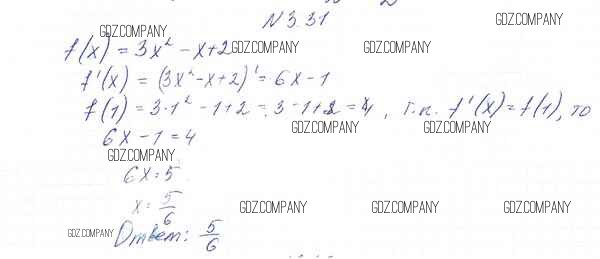 N 3.31
f(x) = 3x² - x + 2
f'(x) = (3x² - x + 2)' = 6x - 1
f(1) = 3·1² - 1 + 2 = 3 - 1 + 2 = 4, т.к. f'(x) = f(1), то
6x - 1 = 4
6x = 5
x = 5/6
Ответ: 5/6
GDZ.COMPANY
GDZ.COMPANY
GDZ.COMPANY
GDZ.COMPANY
GDZ.COMPANY
GDZ.COMPANY
GDZ.COMPANY
GDZ.COMPANY
GDZ.COMPANY
GDZ.COMPANY
GDZ.COMPANY